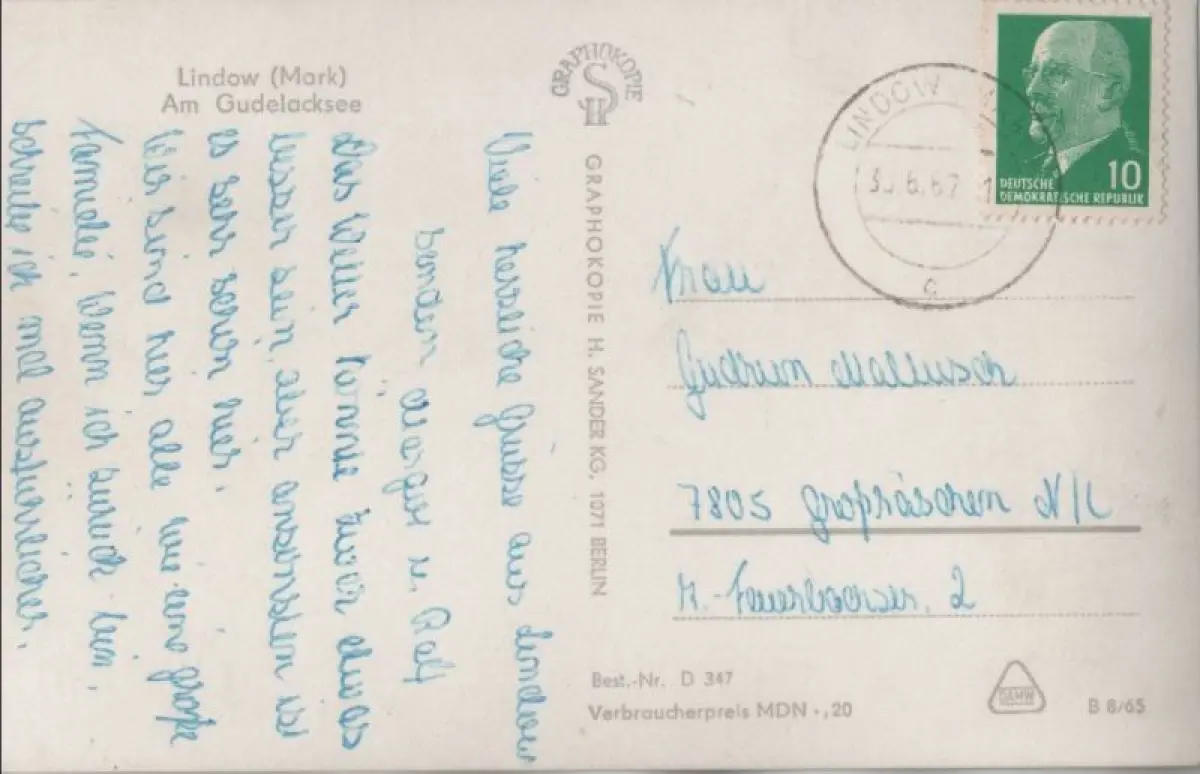 Lindow (Mark)
Am Gudelacksee
Viele herzliche Grüsse aus Lindow
senden u. Ralf
Das Wetter könnte zwar etwas
besser sein, aber ansonsten ist
es sehr schön hier.
Wir sind hier alle wie eine große
Familie. Wenn ich zurück bin,
schreibe ich mal ausführlicher.
GRAPHOKOPIE
GRAPHOKOPIE H. SANDER KG, 1071 BERLIN
LINDOW
6.67
c
10
DEUTSCHE
DEMOKRATISCHE REPUBLIK
Frau
Gudrun Mallusch
7805 Großräschen N/L
Best.-Nr. D 347
Verbraucherpreis MDN -,20
DAMW
B 8/65